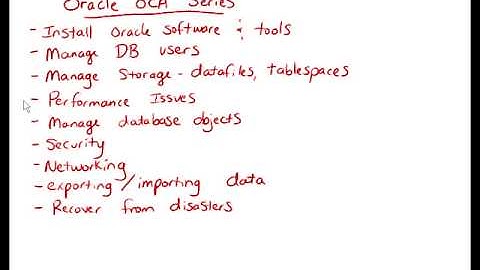 Oracle OCA Series
- Install Oracle Software & tools
- Manage DB users
- Manage Storage - datafiles, tablespaces
- Performance Issues
- Manage database objects
- Security
- Networking
- exporting / importing data
- Recover from disasters